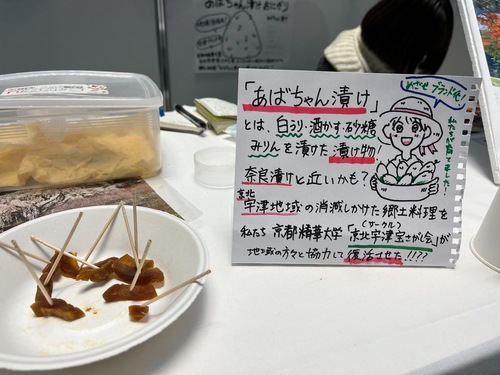 あばちゃん漬けおにぎり
めざせ ブランド化!
「あばちゃん漬け」
とは、白うり・酒かす・砂糖
みりんを漬けた漬け物
奈良漬けと近いかも?
私たちが育てました!
京北
宇津地域の消滅しかけた郷土料理を
(サークル)
私たち 京都精華大学「京北宇津宝さがし会」が
地域の方々と協力して復活させた!!??